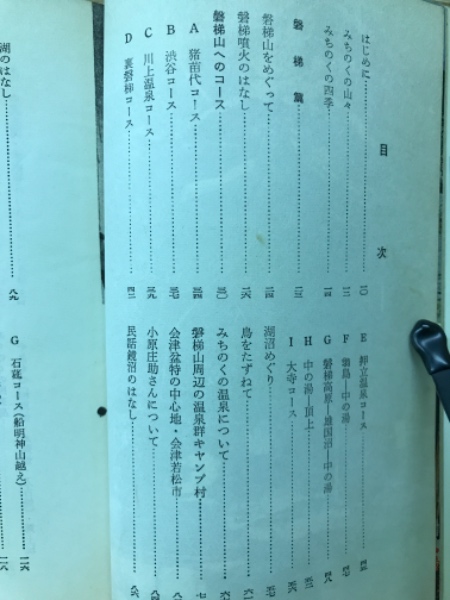 目次
はじめに 一〇
みちのくの山々 一二
みちのくの四季 一四
磐梯篇 二三
磐梯山をめぐって 二四
磐梯噴火のはなし 二六
磐梯山へのコース 三〇
A 猪苗代コース 三四
B 渋谷コース 三七
C 川上温泉コース 三九
D 裏磐梯コース 四二
E 押立温泉コース
F 中の湯
G 磐梯高原—雄国沼—中の湯 四八
H 中の湯—頂上
I 大寺コース 五六
湖沼めぐり 五七
島をたずねて 六一
みちのくの温泉について
磐梯山周辺の温泉群キャンプ村
会津盆特の中心地・会津若松市
小原庄助さんについて 八四
民話鏡沼のはなし 八六
湖のはなし 八九
G 石莚コース(船明神山越え) 一一六